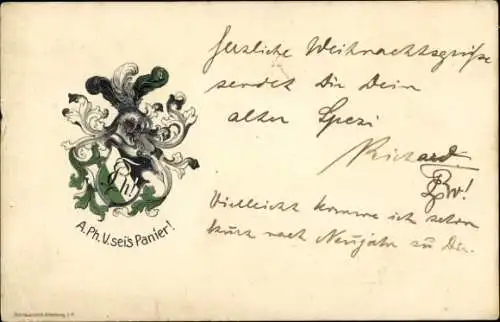 Herzliche Weihnachtsgrüße
sendet Dir Dein
alter Spezi
Richard
Vielleicht komme ich schon
kurz nach Neujahr zu Dir.
A. Ph. V. sei's Panier!